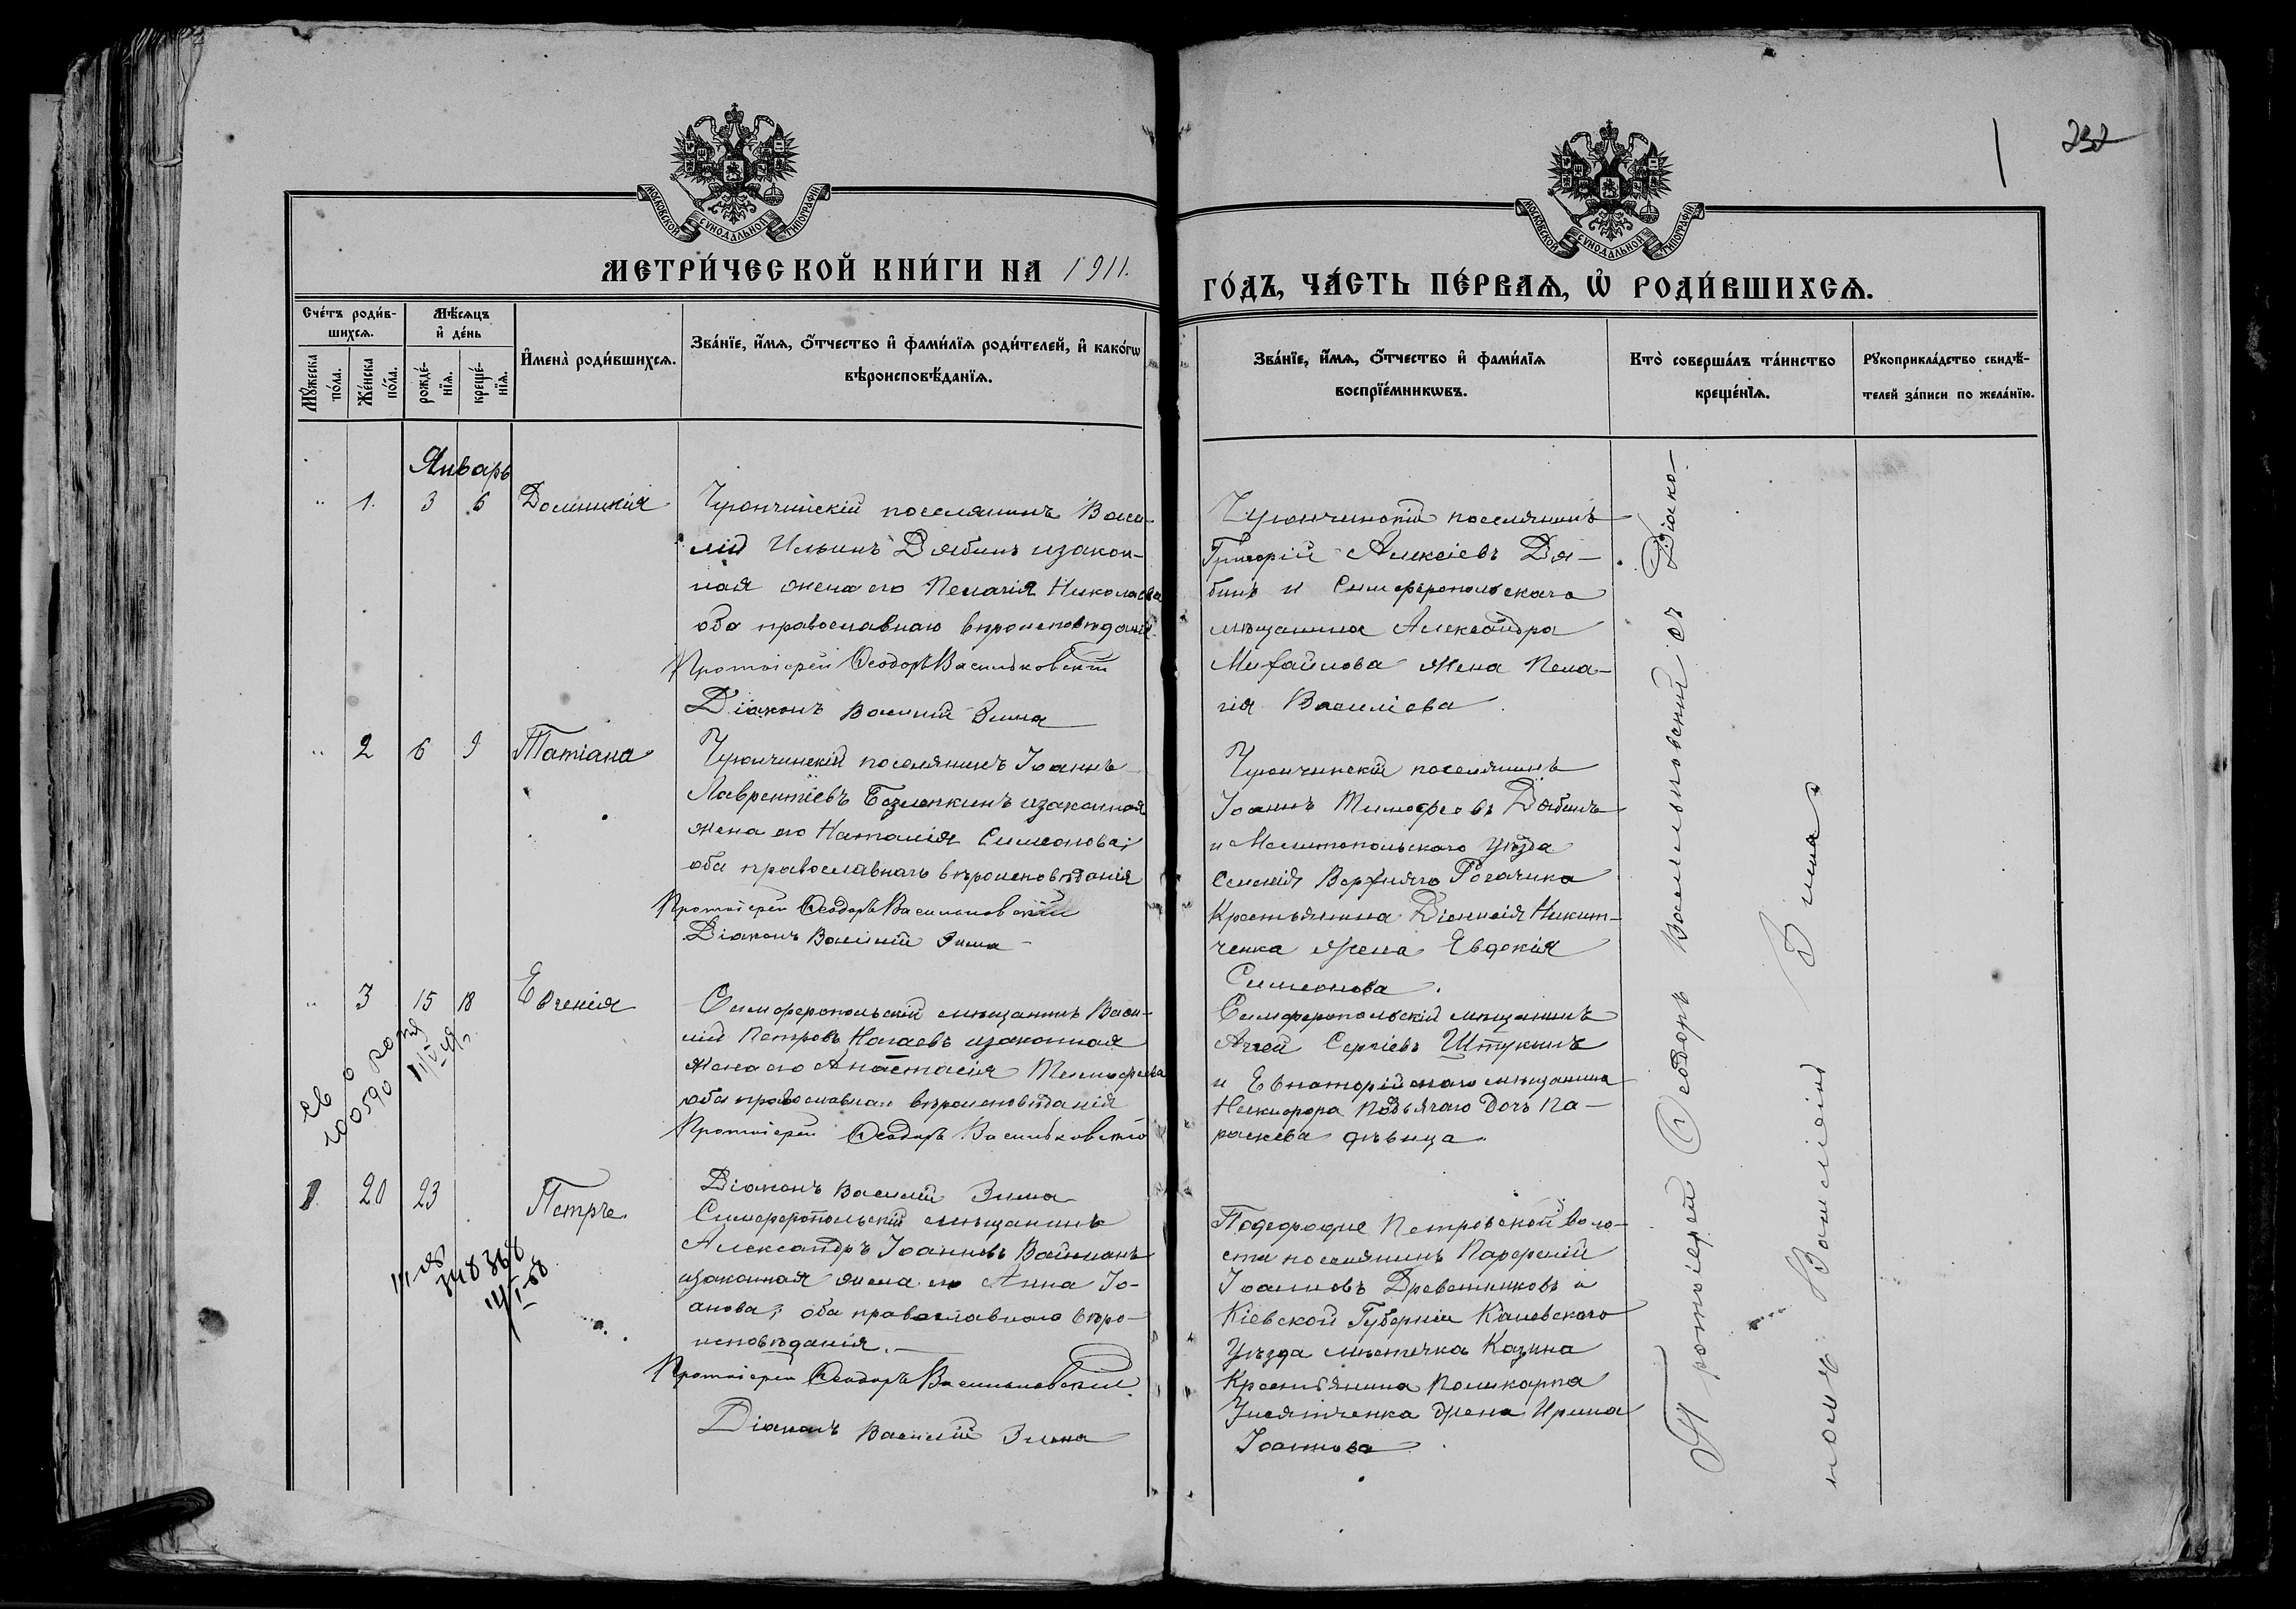 232
МОСКОВСКОЙ СѴНОДАЛЬНОЙ ТИПОГРАФІИ
МОСКОВСКОЙ СѴНОДАЛЬНОЙ ТИПОГРАФІИ
МЕТРИ́ЧЕСКОЙ КНИ́ГИ НА 1911.
ГО́ДЪ, ЧА́СТЬ ПЕ́РВАѦ, Ѡ҆ РОДИ́ВШИХСѦ.
Сче́тъ роди́в-
шихсѧ.
Мꙋ́жеска
по́ла.
Же́нска
по́ла.
Мѣ́сѧцъ
и҆ де́нь
рожде́-
нїѧ.
креще́-
нїѧ.
И҆мена̀ роди́вшихсѧ.
Зва́нїе, и҆́мѧ, ѻ҆́тчество и҆ фами́лїѧ роди́телей, и҆ како́гѡ
вѣроисповѣ́данїѧ.
Зва́нїе, и҆́мѧ, ѻ҆́тчество и҆ фами́лїѧ
воспрїе́мникѡвъ.
Кто̀ соверша́лъ та́инство
креще́нїѧ.
Рꙋкоприкла́дство свидѣ́-
телей за́писи по жела́нїю.
Январь
" 1. 3 6 Домникія
Чуюнчинскій поселянинъ Васи-
лій Ильинъ Дябинъ изакон-
ная жена его Пелагія Николаева
оба православнаго вѣроисповѣданія
Протоіерей Ѳеодоръ Васильковскій
Діаконъ Василій Зима
Чуюнчинскій поселянинъ
Григорій Алексіевъ Дя-
бинъ и Симферопольскаго
мѣщанина Александра
Михайлова жена Пела-
гія Василіева.
" 2 6 9 Татіана
Чуюнчинскій поселянинъ Іоаннъ
Лаврентіевъ изаконная
жена его Наталія Симеонова;
оба православнаго вѣроисповѣданія
Протоіерей Ѳеодоръ Васильковскій
Діаконъ Василій Зима
Чуюнчинскій поселянинъ
Іоаннъ Тимофеевъ Дябинъ
и Мелитопольскаго уѣзда
Селенія Верхняго Рогачика
Крестьянина Діонисія Никит-
ченка жена Евдокія
Симеонова.
" 3 15 18 Евгенія
Симферопольскій мѣщанинъ Васи-
лій Петровъ Нагаевъ изаконная
жена его Анастасія Тимофеева
оба православнаго вѣроисповѣданія
Протоіерей Ѳеодоръ Васильковскій
Діаконъ Василій Зима
Симферопольскій мѣщанинъ
Аггей Сергіевъ Штукинъ
и Евпаторійскаго мѣщанина
Никифора Подъячаго дочь Па-
раскева дѣвица.
Св о рожд
1 20 23 Петръ.
Симферопольскій мѣщанинъ
Александръ Іоанновъ Вайнманъ
изаконная жена его Анна Іо-
анова; оба православнаго вѣро-
исповѣданія.
Протоіерей Ѳеодоръ Васильковскій
Діаконъ Василій Зима
Петровской воло-
сти поселянинъ Парфеній
Іоанновъ Древетниковъ и
Кіевской Губерніи Каневскаго
Уѣзда мѣстечка Казина
Крестьянина Поликарпа
жена Ирина
Іоаннова.
Протоіерей Ѳеодоръ Васильковскій съ Діако-
номъ Василіемъ Зима